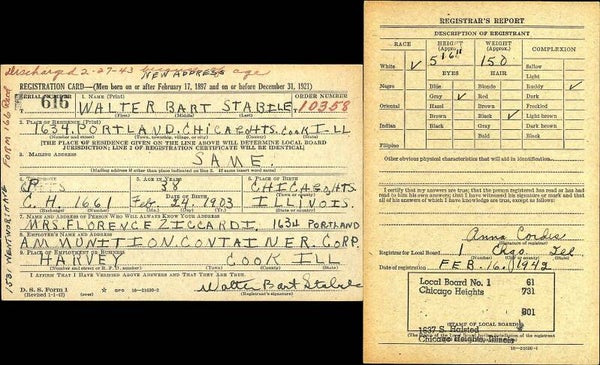 Discharged 2-27-43 age
NEW ADDRESS
REGISTRATION CARD—(Men born on or after February 17, 1897 and on or before December 31, 1921)
SERIAL NUMBER 616
1. NAME (Print)
ORDER NUMBER
WALTER BART STABILE
10358
(First) (Middle) (Last)
2. PLACE OF RESIDENCE (Print)
1634 PORTLAND. CHICAGO HTS. COOK ILL
(Number and street) (Town, township, village, or city) (County) (State)
[THE PLACE OF RESIDENCE GIVEN ON THE LINE ABOVE WILL DETERMINE LOCAL BOARD
JURISDICTION; LINE 2 OF REGISTRATION CERTIFICATE WILL BE IDENTICAL]
3. MAILING ADDRESS
SAME.
(Mailing address if other than place indicated on line 2. If same insert word same)
4. TELEPHONE
5. AGE IN YEARS
6. PLACE OF BIRTH
38
CHICAGO HTS.
DATE OF BIRTH
C. H. 1661 Feb. 24. 1903 ILLINOIS.
7. NAME AND ADDRESS OF PERSON WHO WILL ALWAYS KNOW YOUR ADDRESS
MRS. FLORENCE ZICCARDI. 1634 PORTLAND
8. EMPLOYER'S NAME AND ADDRESS
AMMUNITION. CONTAINER. CORP.
9. PLACE OF EMPLOYMENT OR BUSINESS
HARVEY COOK ILL
(Number and street or R. F. D. number) (Town) (County) (State)
I AFFIRM THAT I HAVE VERIFIED ABOVE ANSWERS AND THAT THEY ARE TRUE.
D. S. S. Form 1
(Revised 1-1-42)
16—21630-2
Walter Bart Stabile
(Registrant's signature)
153. WENTWORTH AVE
FORM 166 Recd
REGISTRAR'S REPORT
DESCRIPTION OF REGISTRANT
RACE
HEIGHT (Approx.)
WEIGHT (Approx.)
COMPLEXION
White ✓ 5'6" 150 Sallow
EYES HAIR Light
Negro Blue Blonde Ruddy ✓
Gray ✓ Red Dark
Oriental Hazel Brown Freckled
Brown Black ✓ Light brown
Indian Black Gray Dark brown
Bald Black
Filipino
Other obvious physical characteristics that will aid in identification
I certify that my answers are true; that the person registered has read or has had
read to him his own answers; that I have witnessed his signature or mark and that
all of his answers of which I have knowledge are true, except as follows:
Anna Cordis
(Signature of registrar)
Registrar for Local Board 1 Chgo. Ill
Date of registration FEB. 16. 1942
Local Board No. 1 61
Chicago Heights 731
801
1637 S. Halsted
(STAMP OF LOCAL BOARD)
Chicago Heights, Illinois
16—21630-1